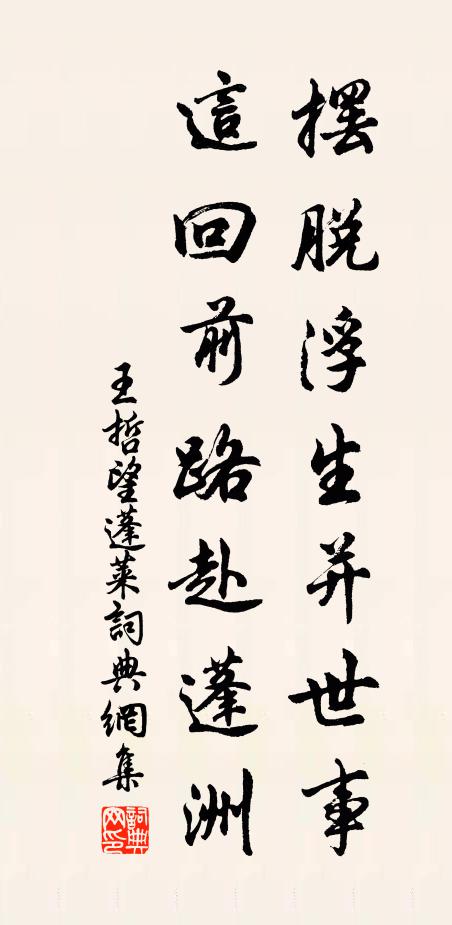 擺脫浮生并世事
這回前路赴蓬洲
王哲望蓬萊詞典網集
詞典網印